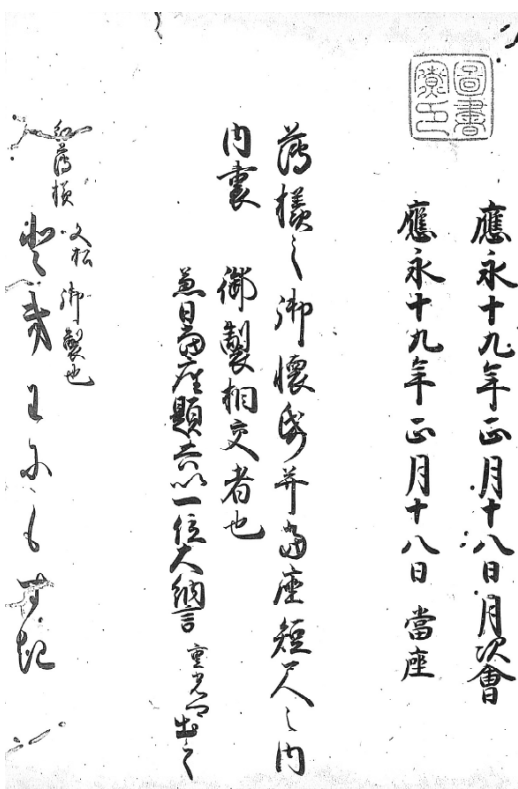 圖書寮印
應永十九年正月十八日月次會
應永十九年正月十八日 當座
薄樣之御懷紙并當座短尺之内
内裏 御製相交者也
兼日當座題共以一位大納言重光卿出之
紅薄樣
又松御製也